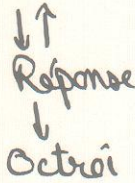 Réponse
Octroi